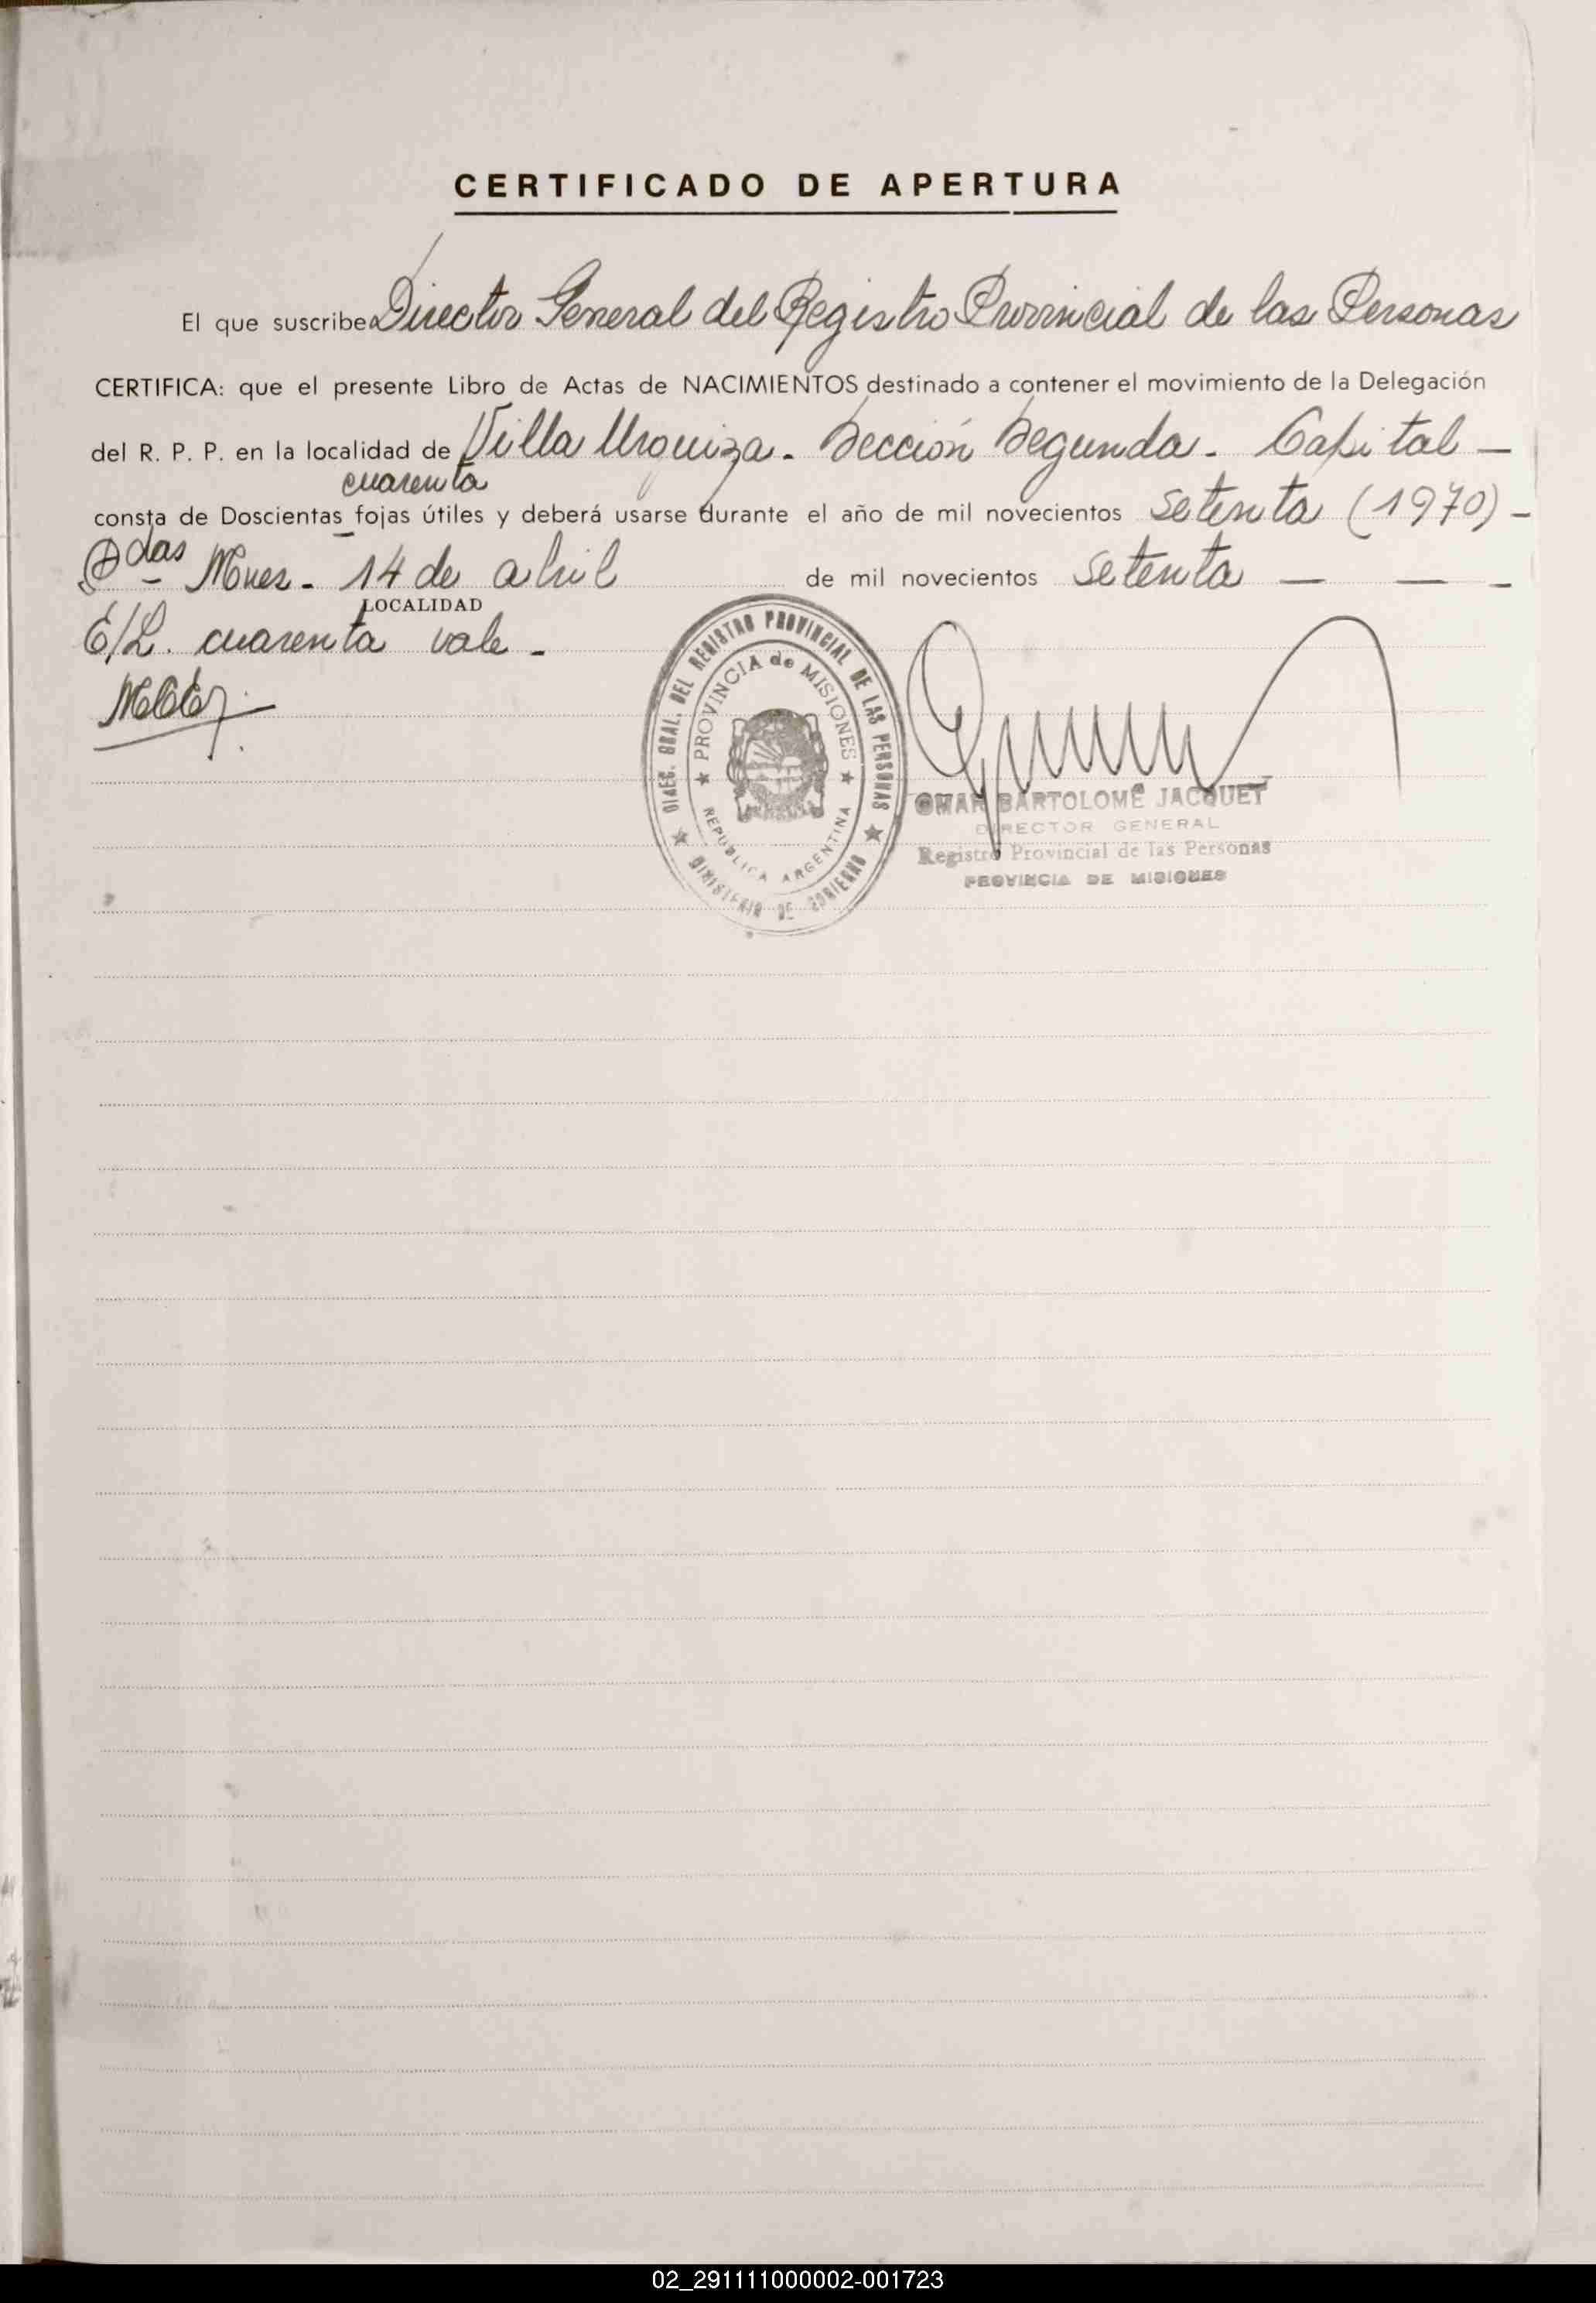 CERTIFICADO DE APERTURA
El que suscribe Director General del Registro Provincial de las Personas
CERTIFICA: que el presente Libro de Actas de NACIMIENTOS destinado a contener el movimiento de la Delegación
del R. P. P. en la localidad de Villa Urquiza. Sección Segunda. Capital -
cuarenta
consta de Doscientas fojas útiles y deberá usarse durante el año de mil novecientos setenta (1970) -
Pdas Mnes. 14 de abril de mil novecientos setenta - - -
LOCALIDAD
E/L. cuarenta vale -
DIREC. GRAL. DEL REGISTRO PROVINCIAL DE LAS PERSONAS
PROVINCIA de MISIONES
REPUBLICA ARGENTINA
MINISTERIO DE GOBIERNO
OMAR BARTOLOMÉ JACQUET
DIRECTOR GENERAL
Registro Provincial de las Personas
PROVINCIA DE MISIONES
02_291111000002-001723